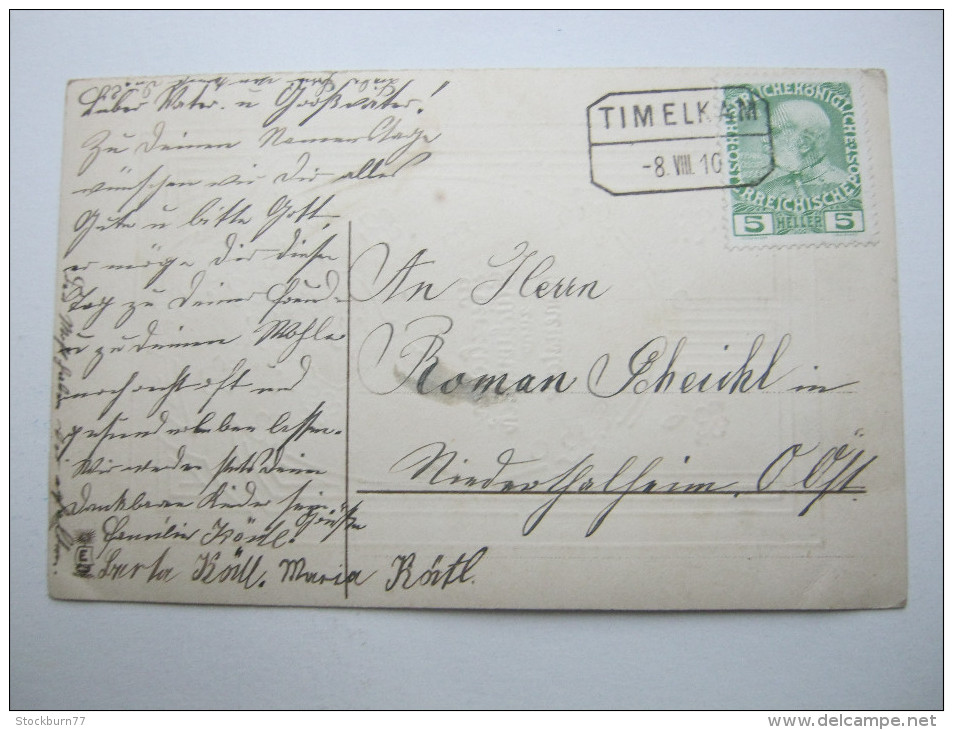 Lieber Vater u Großvater!
Zu Deinem Namenstage
wünschen wir Dir alles
Gute u bitte Gott
er möge Dir diesen
Tag zu Deiner Freud
u zu deinem Wohle
noch recht oft und
gesund erleben lassen.
Wir werden stets Deine
dankbaren Kinder sein
Familie Köttl.
Berta Köttl. Maria Köttl.
TIMELKAM
-8. VIII. 10
KAISERLICHE KÖNIGLICHE ÖSTERREICHISCHE POST
5 HELLER 5
An Herrn
Roman Scheichl in
Niederthalheim, O Öst.
Stockburn77
www.delcampe.net